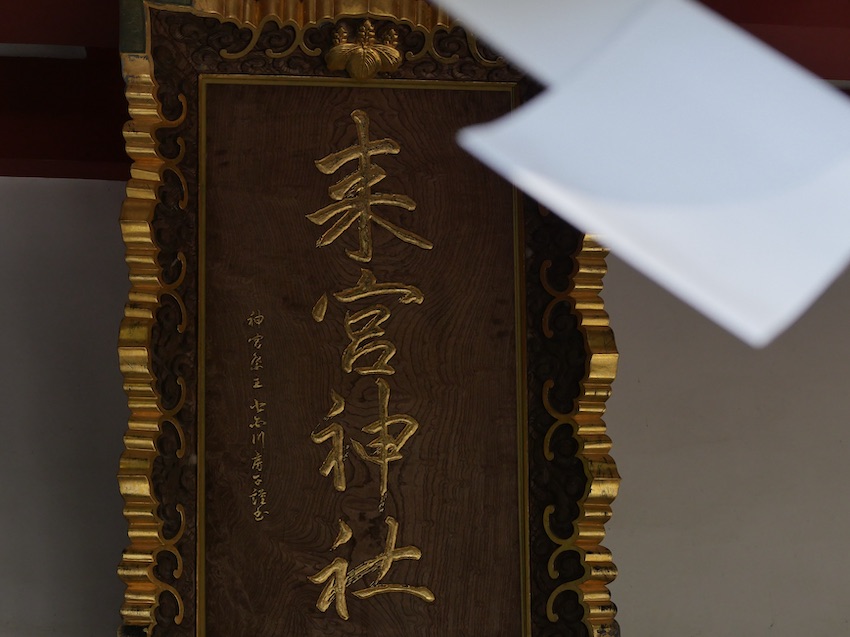 来宮神社
神宮祭主 北白川房子謹書